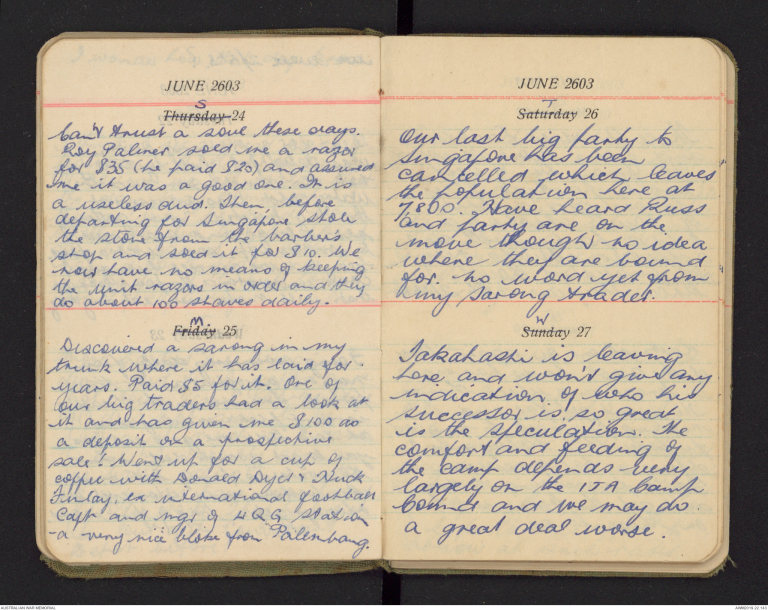 JUNE 2603
S
Thursday 24
Can't trust a soul these days.
Roy Palmer sold me a razor
for $35 (he paid $20) and assured
me it was a good one. It is
a useless dud. Then, before
departing for Singapore stole
the stone from the barbers
shop and sold it for $10. We
now have no means of keeping
the unit razors in order and they
do about 100 shaves daily.
M
Friday 25
Discovered a sarong in my
trunk where it has laid for
years. Paid $5 for it. One of
our big traders had a look at
it and has given me $100 as
a deposit on a prospective
sale! Went up for a cup of
coffee with Donald Dyer &
Finlay, ex international football
Capt and mgr of H.Q.G station
- a very nice bloke from Palembang.
JUNE 2603
T
Saturday 26
Our last big party to
Singapore has been
cancelled which leaves
the population here at
7,800. Have heard Russ
and party are on the
move though no idea
where they are bound
for. No word yet from
my sarong trader.
W
Sunday 27
Takahashi is leaving
here and won't give any
indication of who his
successor is so great
is the speculation. The
comfort and feeding of
the camp depends very
largely on the ITA Camp
Comd and we may do
a great deal worse.
AUSTRALIAN WAR MEMORIAL